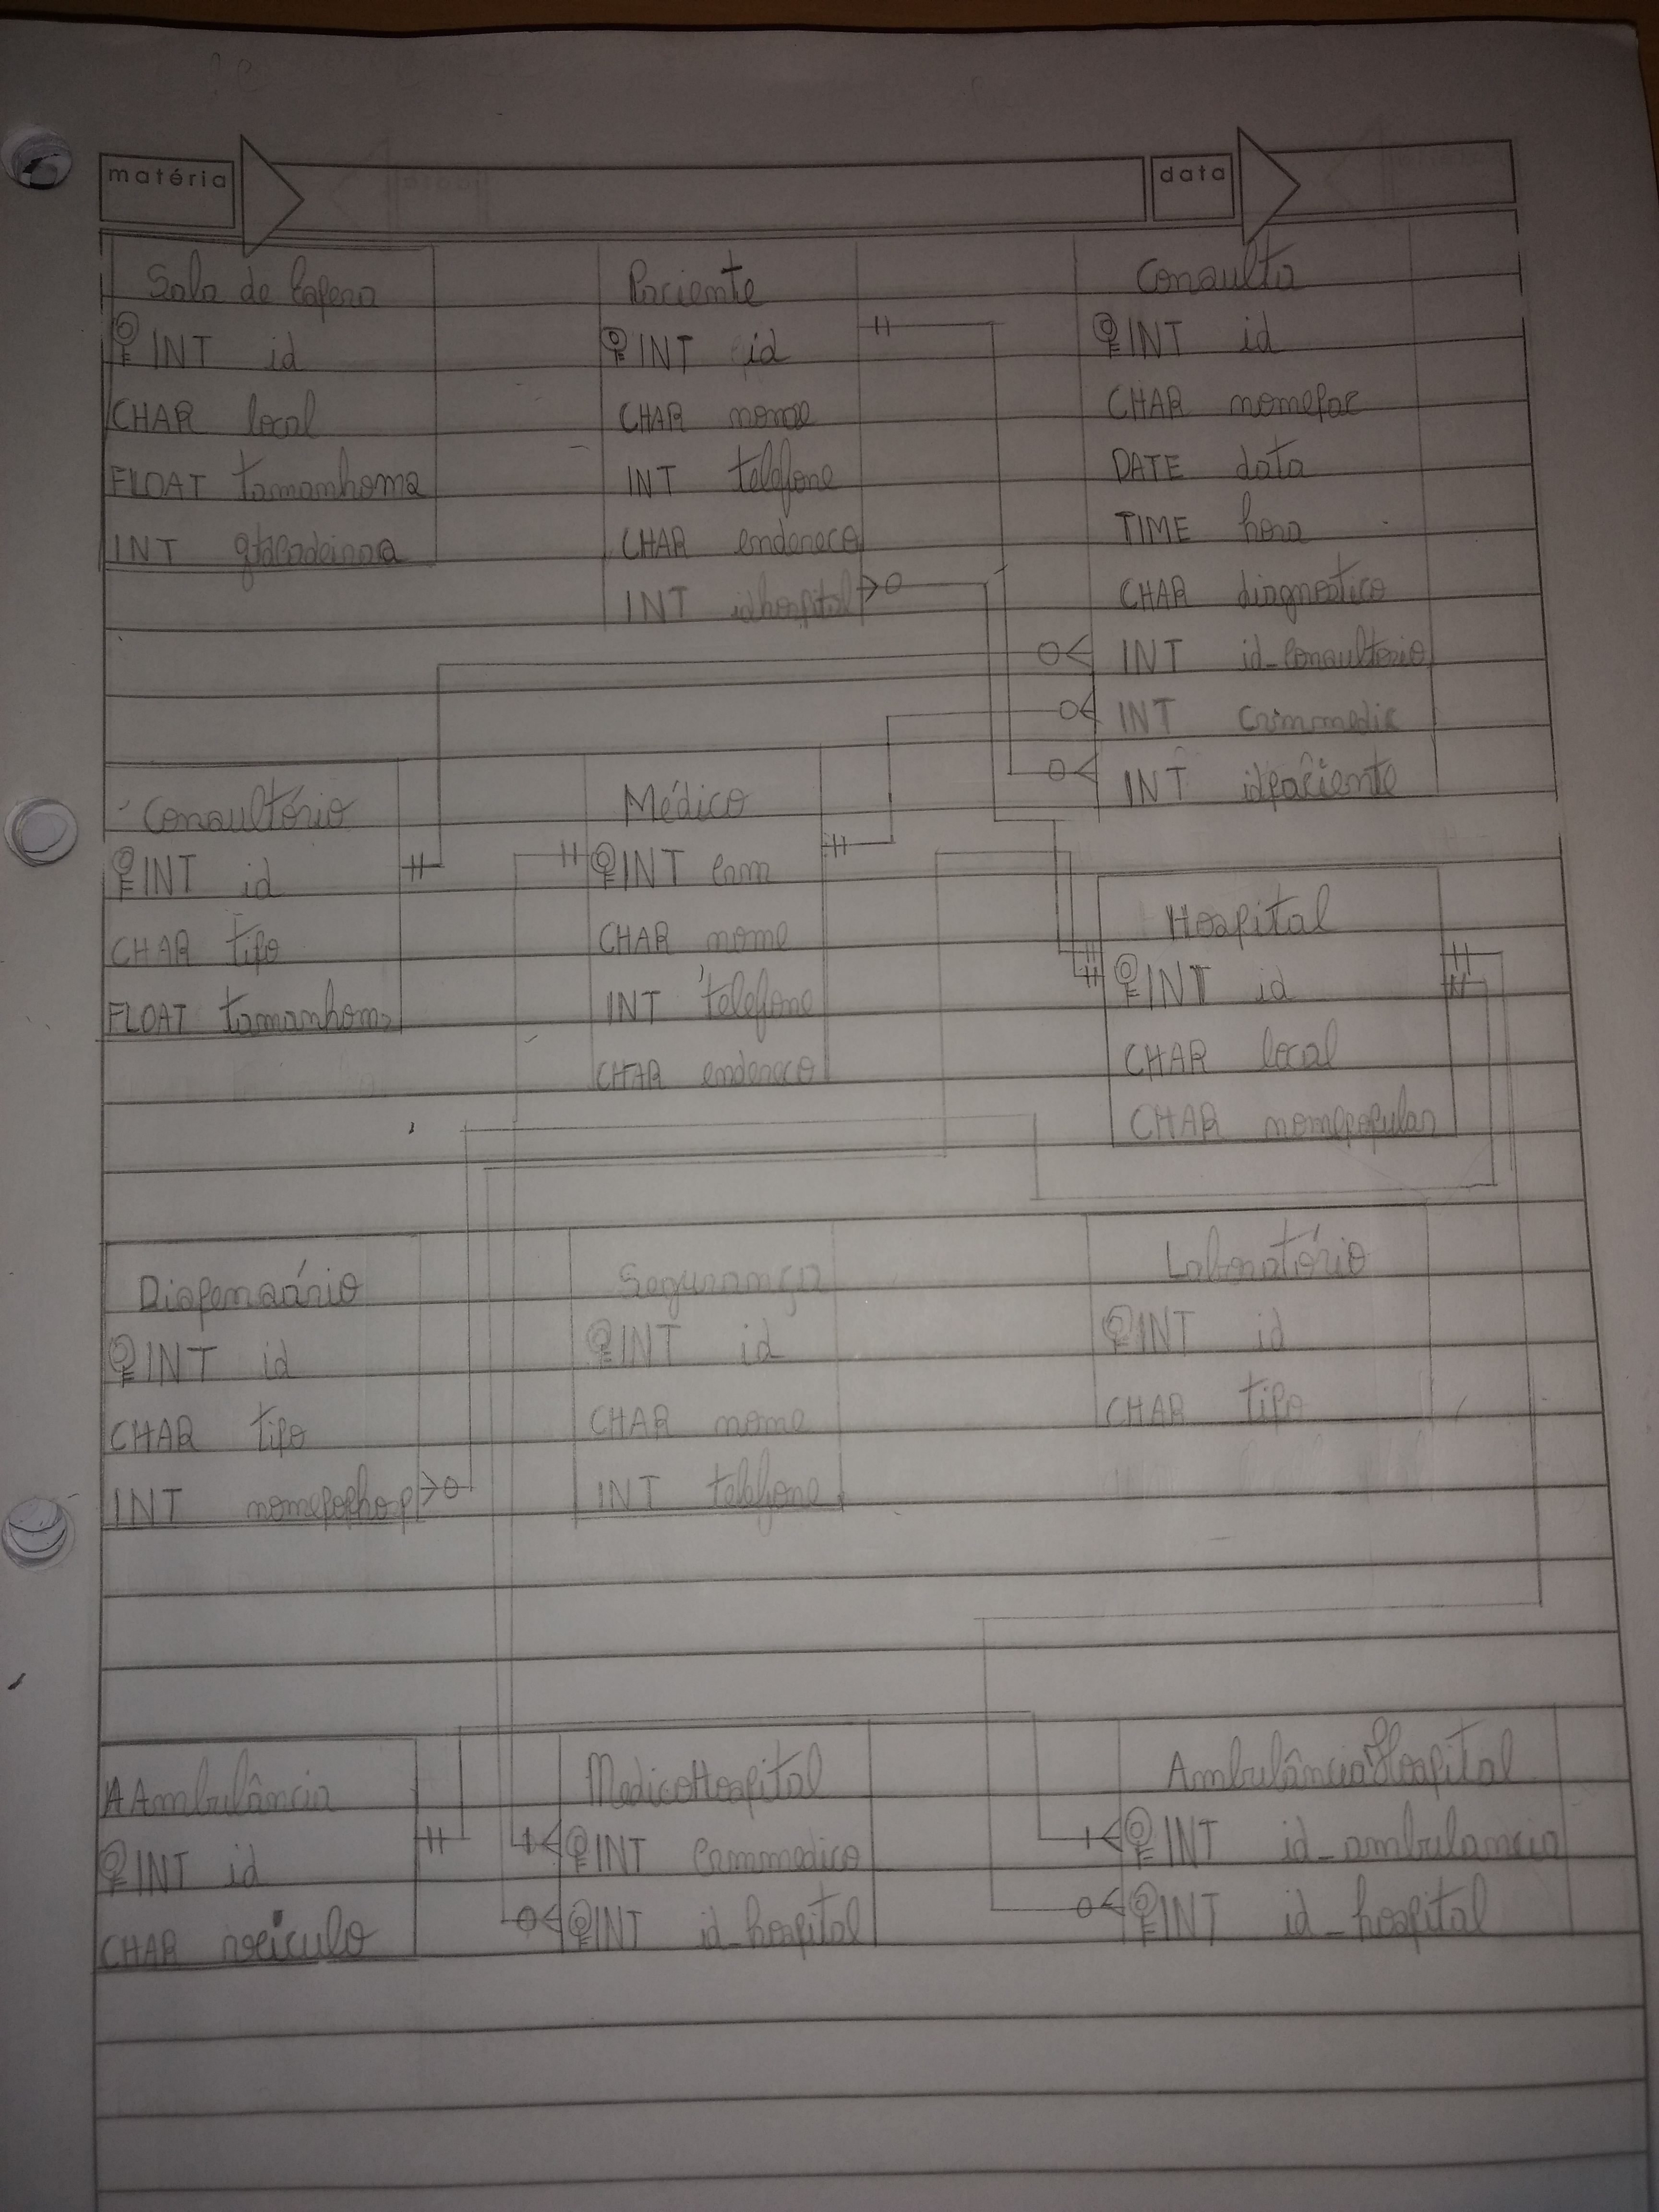 matéria
data
Sala de Espera
INT id
CHAR local
FLOAT tamanhom2
INT qtdcadeiras
Paciente
INT id
CHAR nome
INT telefone
CHAR endereco
INT idhospital
Consulta
INT id
CHAR nomepac
DATE data
TIME hora
CHAR diagnostico
INT id_consultorio
INT crmmedic
INT idpaciente
Consultório
INT id
CHAR tipo
FLOAT tamanhom2
Médico
INT crm
CHAR nome
INT telefone
CHAR endereco
Hospital
INT id
CHAR local
CHAR nomepopular
Dispensário
INT id
CHAR tipo
INT nomepophosp
Segurança
INT id
CHAR nome
INT telefone
Laboratório
INT id
CHAR tipo
Ambulância
INT id
CHAR veiculo
MedicoHospital
INT crmmedico
INT id_hospital
AmbulânciaHospital
INT id_ambulancia
INT id_hospital